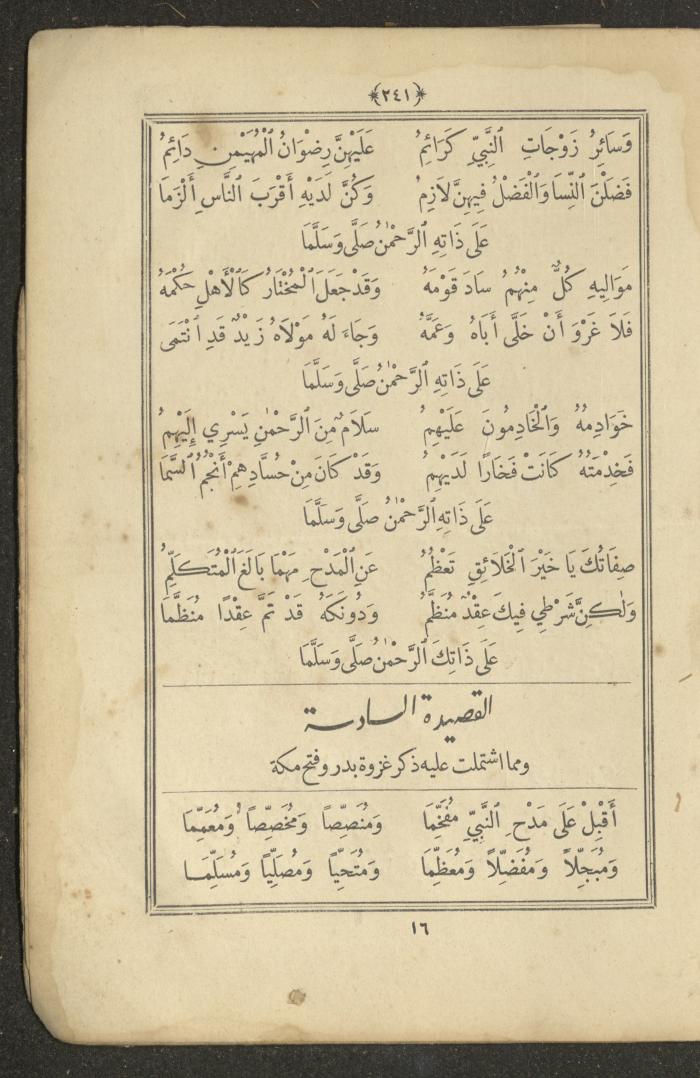 ﴿٢٤١﴾
وَسَائِرُ زَوْجَاتِ ٱلنَّبِيِّ كَرَائِمُ عَلَيْهِنَّ رِضْوَانُ ٱلْمُهَيْمِنِ دَائِمُ
فَضَلْنَ ٱلنِّسَا وَٱلْفَضْلُ فِيهِنَّ لَازِمُ وَكُنَّ لَدَيْهِ أَقْرَبَ ٱلنَّاسِ أَلْزَمَا
عَلَى ذَاتِهِ ٱلرَّحْمٰنُ صَلَّى وَسَلَّمَا
مَوَالِيهِ كُلٌّ مِنْهُمُ سَادَ قَوْمَهُ وَقَدْ جَعَلَ ٱلْمُخْتَارُ كَٱلْأَهْلِ حُكْمَهُ
فَلَا غَرْوَ أَنْ خَلَّى أَبَاهُ وَعَمَّهُ وَجَاءَ لَهُ مَوْلَاهُ زَيْدٌ قَدِ ٱنْتَمَى
عَلَى ذَاتِهِ ٱلرَّحْمٰنُ صَلَّى وَسَلَّمَا
خَوَادِمُهُ وَٱلْخَادِمُونَ عَلَيْهِمُ سَلَامٌ مِنَ ٱلرَّحْمٰنِ يَسْرِي إِلَيْهِمُ
فَخِدْمَتُهُ كَانَتْ فَخَارًا لَدَيْهِمُ وَقَدْ كَانَ مِنْ حُسَّادِهِمْ أَنْجُمُ ٱلسَّمَا
عَلَى ذَاتِهِ ٱلرَّحْمٰنُ صَلَّى وَسَلَّمَا
صِفَاتُكَ يَا خَيْرَ ٱلْخَلَائِقِ تَعْظُمُ عَنِ ٱلْمَدْحِ مَهْمَا بَالَغَ ٱلْمُتَكَلِّمُ
وَلٰكِنَّ شَرْطِي فِيكَ عِقْدٌ مُنَظَّمُ وَدُونَكَهُ قَدْ تَمَّ عِقْدًا مُنَظَّمَا
عَلَى ذَاتِكَ ٱلرَّحْمٰنُ صَلَّى وَسَلَّمَا
القصيدة السادسة
ومما اشتملت عليه ذكر غزوة بدر وفتح مكة
أَقْبِلْ عَلَى مَدْحِ ٱلنَّبِيِّ مُفَخِّمَا وَمُنَصِّصاً وَمُخَصِّصاً وَمُعَمِّمَا
وَمُبَجِّلاً وَمُفَضِّلاً وَمُعَظِّمَا وَمُتَحِيّاً وَمُصَلِّياً وَمُسَلِّمَا
١٦